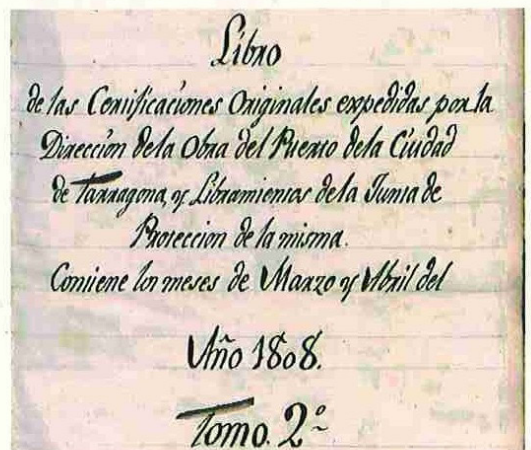 Libro
de las Certificaciones Originales expedidas por la
Dirección dela Obra del Puerto dela Ciudad
de Tarragona, y Libramientos dela Junta de
Proteccion de la misma.
Contiene los meses de Marzo y Abril del
Año 1808.
Tomo. 2º